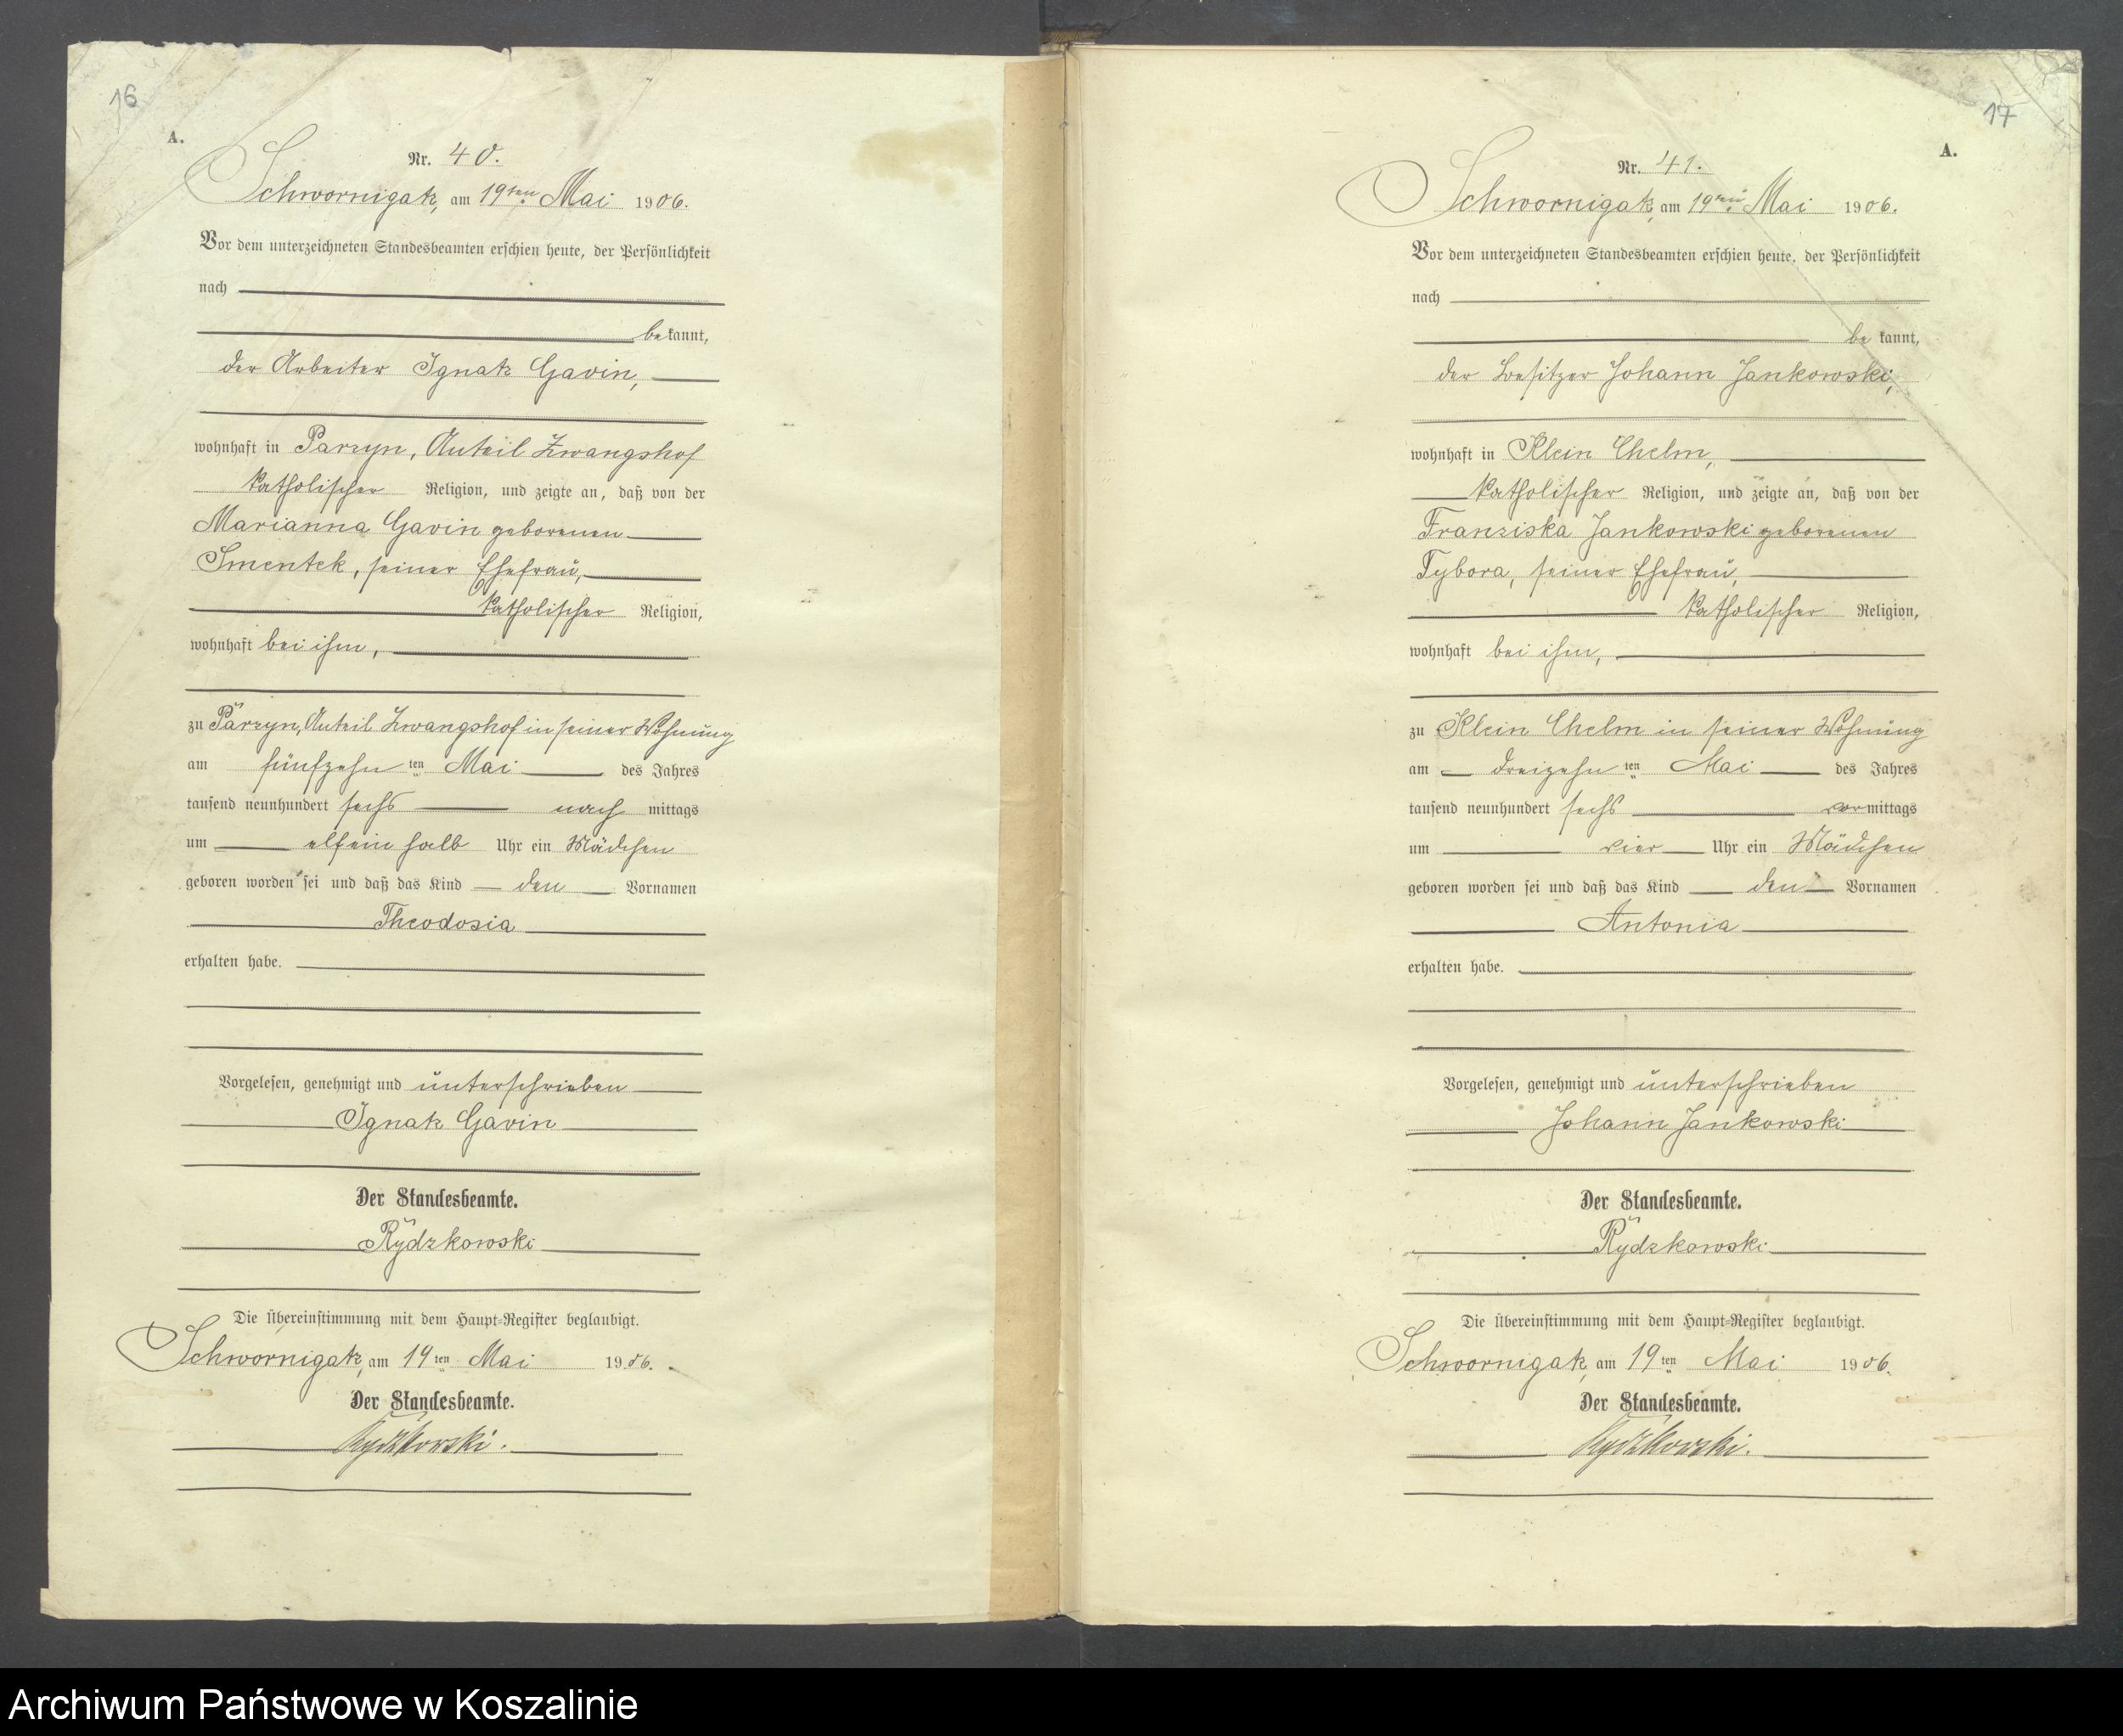 16
A.
Nr. 40.
Schwornigatz, am 19ten Mai 1906.
Vor dem unterzeichneten Standesbeamten erschien heute, der Persönlichkeit
nach
bekannt,
der Arbeiter Ignatz Gavin,
wohnhaft in Parzyn, Anteil Zwangshof
katholischer Religion, und zeigte an, daß von der
Marianna Gavin geborenen
Smentek, seiner Ehefrau,
katholischer Religion,
wohnhaft bei ihm,
zu Parzyn, Anteil Zwangshof in seiner Wohnung
am fünfzehn ten Mai des Jahres
tausend neunhundert sechs nach mittags
um elfein halb Uhr ein Mädchen
geboren worden sei und daß das Kind den Vornamen
Theodosia
erhalten habe.
Vorgelesen, genehmigt und unterschrieben
Ignatz Gavin
Der Standesbeamte.
Rydzkowski
Die Übereinstimmung mit dem Haupt-Register beglaubigt.
Schwornigatz, am 19 ten Mai 1906.
Der Standesbeamte.
Rydzkowski.
17
A.
Nr. 41.
Schwornigatz, am 19ten Mai 1906.
Vor dem unterzeichneten Standesbeamten erschien heute, der Persönlichkeit
nach
be kannt,
der Besitzer Johann Jankowski,
wohnhaft in Klein Chelm,
katholischer Religion, und zeigte an, daß von der
Franziska Jankowski geborenen
Tybora, seiner Ehefrau,
katholischer Religion,
wohnhaft bei ihm,
zu Klein Chelm in seiner Wohnung
am dreizehn ten Mai des Jahres
tausend neunhundert sechs vormittags
um vier Uhr ein Mädchen
geboren worden sei und daß das Kind den Vornamen
Antonia
erhalten habe.
Vorgelesen, genehmigt und unterschrieben
Johann Jankowski
Der Standesbeamte.
Rydzkowski
Die Übereinstimmung mit dem Haupt-Register beglaubigt.
Schwornigatz, am 19 ten Mai 1906.
Der Standesbeamte.
Rydzkowski.
Archiwum Państwowe w Koszalinie